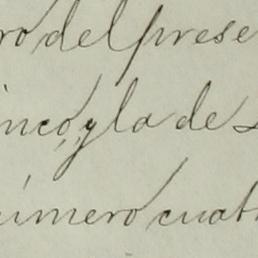 ro del prese
inco, y la de
número cuat